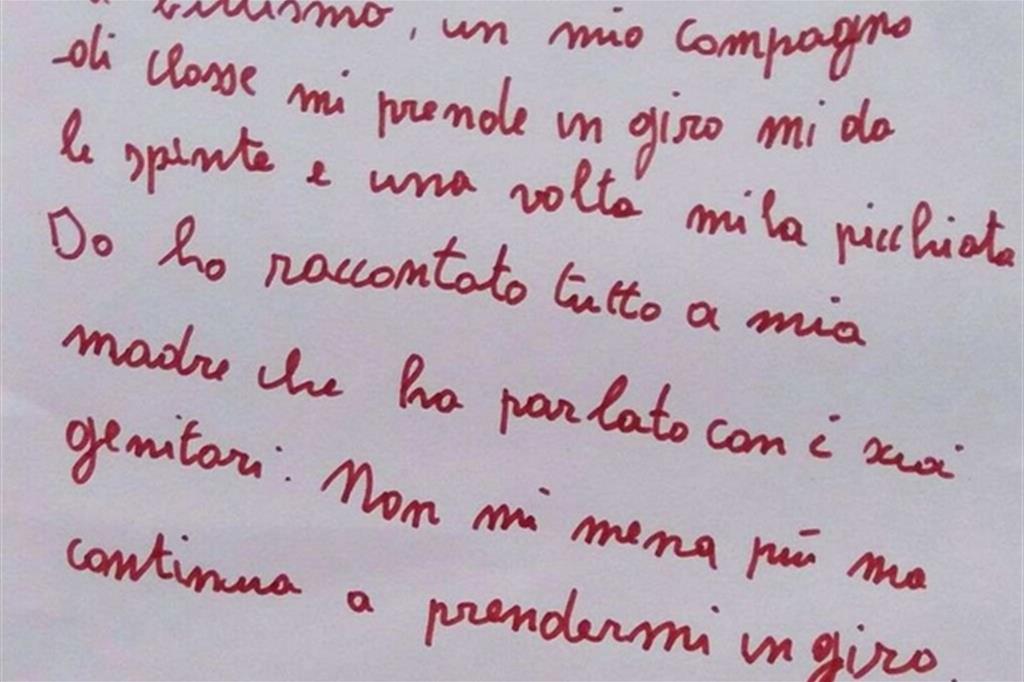 bullismo, un mio compagno
di classe mi prende in giro mi da
le spinte e una volta mi ha picchiata
Io ho raccontato tutto a mia
madre che ha parlato con i suoi
genitori. Non mi mena più ma
continua a prendermi in giro.